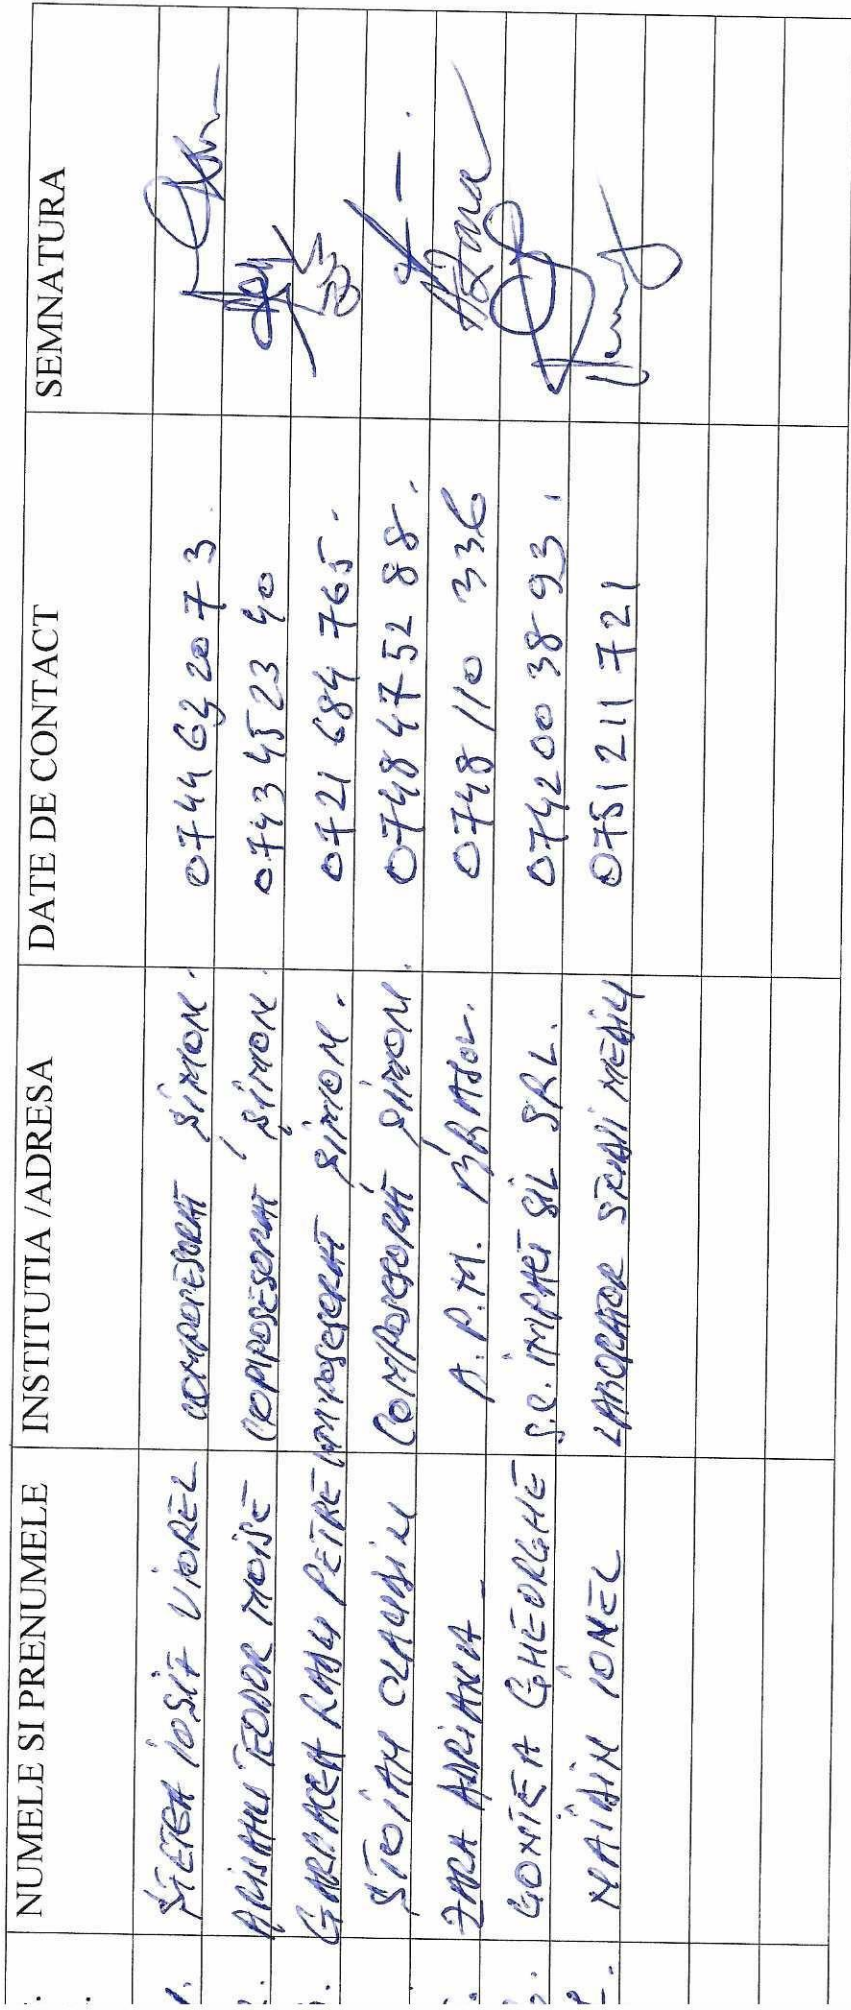 NUMELE SI PRENUMELE INSTITUTIA /ADRESA DATE DE CONTACT SEMNATURA
1. IOSIF VIOREL COMPOSESORAT ȘIMON. 0744 63 20 73.
TEODOR MOISE COMPOSESORAT ȘIMON. 0743 45 23 40
GARBACEA RADU PETRE COMPOSESORAT ȘIMON. 0721 684 765.
STOIAN CLAUDIU COMPOSESORAT ȘIMON. 0748 47 52 88.
ZARA ADRIANA - A.P.M. BRAȘOV. 0748 110 336
GONTEA GHEORGHE S.C. IMPACT SIL SRL. 0742 00 38 93.
MAIDIN IONEL LABORATOR STUDII MEDIU 0751 211 721